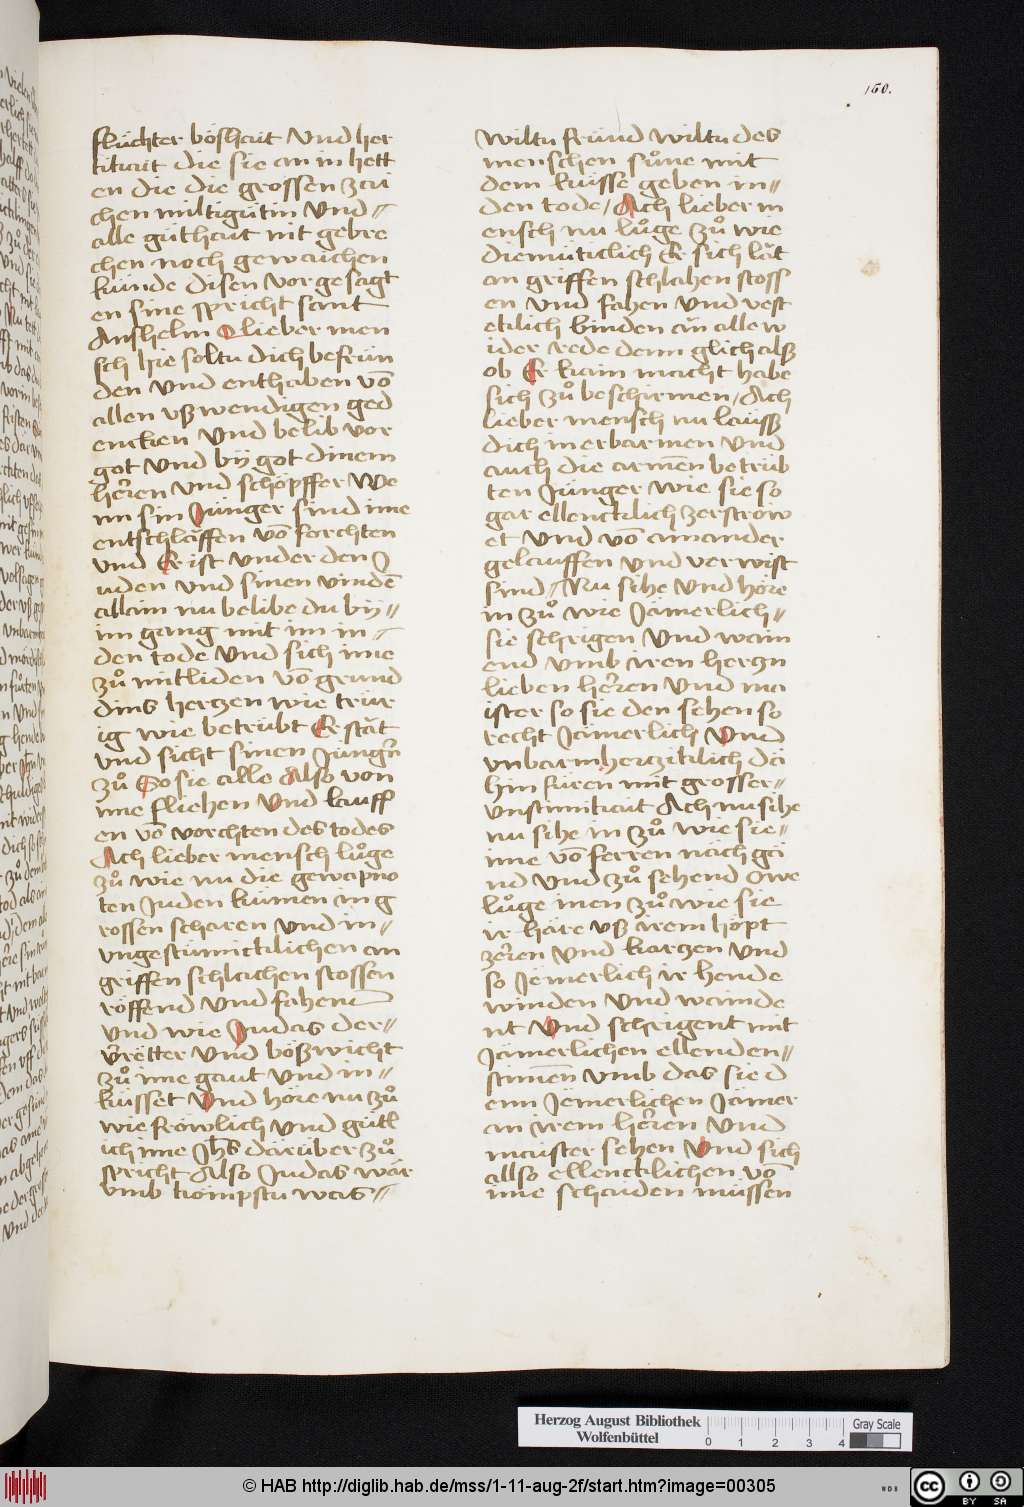 150.
flüchter böshait Vnd her
tikait die sie an im hett
en die die grossen zai
chen miltigütin Vnd
alle güthait nit gebre
chen noch gewaichen
künde disen vorgesagt
en sine spricht sant
Anshelm O lieber men
sch hie soltu dich befrün
den Vnd enthaben vō
allen vßwendigen ged
encken Vnd belib vor
got Vnd bÿ got dinem
herren Vnd schöpffer We
nn sin Jünger sind ime
entschläffen vō forchten
vnd Er ist vnder den J
uden vnd sinen vindē
allain nu belibe du bÿ
im gang mit im in
den tode Vnd sich ime
zů mitliden vō grund
dins hertzen wie trür
ig wie betrübt Er stät
vnd sicht sinen Jüngrn
zů So sie alle Also von
ime fliehen Vnd lauff
en vō vorchten des todes
Ach lieber mensch lůge
zů wie nu die gewapno
ten Juden kümen in g
rossen scharen Vnd in
vngestümicklichen an
griffen schlachen stossen
röffend Vnd fahend
vnd wie Judas der
verrëtter Vnd bößwicht
zů ime gaut Vnd in
küsset Vnd höre nu zů
wie fröwlich Vnd gütl
ich ime Jhs darüber zů
spricht Also Judas war
vmb kompstu was
wiltu fründ wiltu des
menschen sůne mit
dem küsse geben in
den tode / Ach lieber m
ensch nu lůge zů wie
diemüticlich Er sich lät
an griffen schlahen stoss
en vnd fahen Vnd vest
eklich binden än alle w
ider rede denn glich alß
ob Er kain macht habe
sich zů beschirmen / Ach
lieber mensch nu läuss
dich in erbarmen Vnd
auch die armen betrüb
ten Jünger wie sie so
gar ellencklich zerströw
et vnd vō ainander
gelauffen Vnd verwist
sind Nu sihe Vnd höre
in zů wie Jamerlich
sie schrigen Vnd wain
end vmb iren herczn
lieben herren Vnd ma
ister so sie den sehen so
recht Jämerlich Vnd
vnbarmherczicklich dä
hin füren mit grosser
vnstimikait Ach nu sihe
nu sihe in zů wie sie
ime vō ferren näch gä
nd Vnd zů sehend Owe
lůge men zů wie sie
ir häre vß irem höpt
zerren Vnd karzen Vnd
so Jemerlich ir hende
winden Vnd wainde
nt Vnd schrigent mit
Jämerlichen ellenden
stimen vmb das sie d
enn Jemerlichen Jamer
an irem herren Vnd
maister sehen Vnd sich
allso ellencklichen vō
ime schaiden müssen
Herzog August Bibliothek
Wolfenbüttel
0 1 2 3 4
Gray Scale
© HAB http://diglib.hab.de/mss/1-11-aug-2f/start.htm?image=00305
cc BY SA